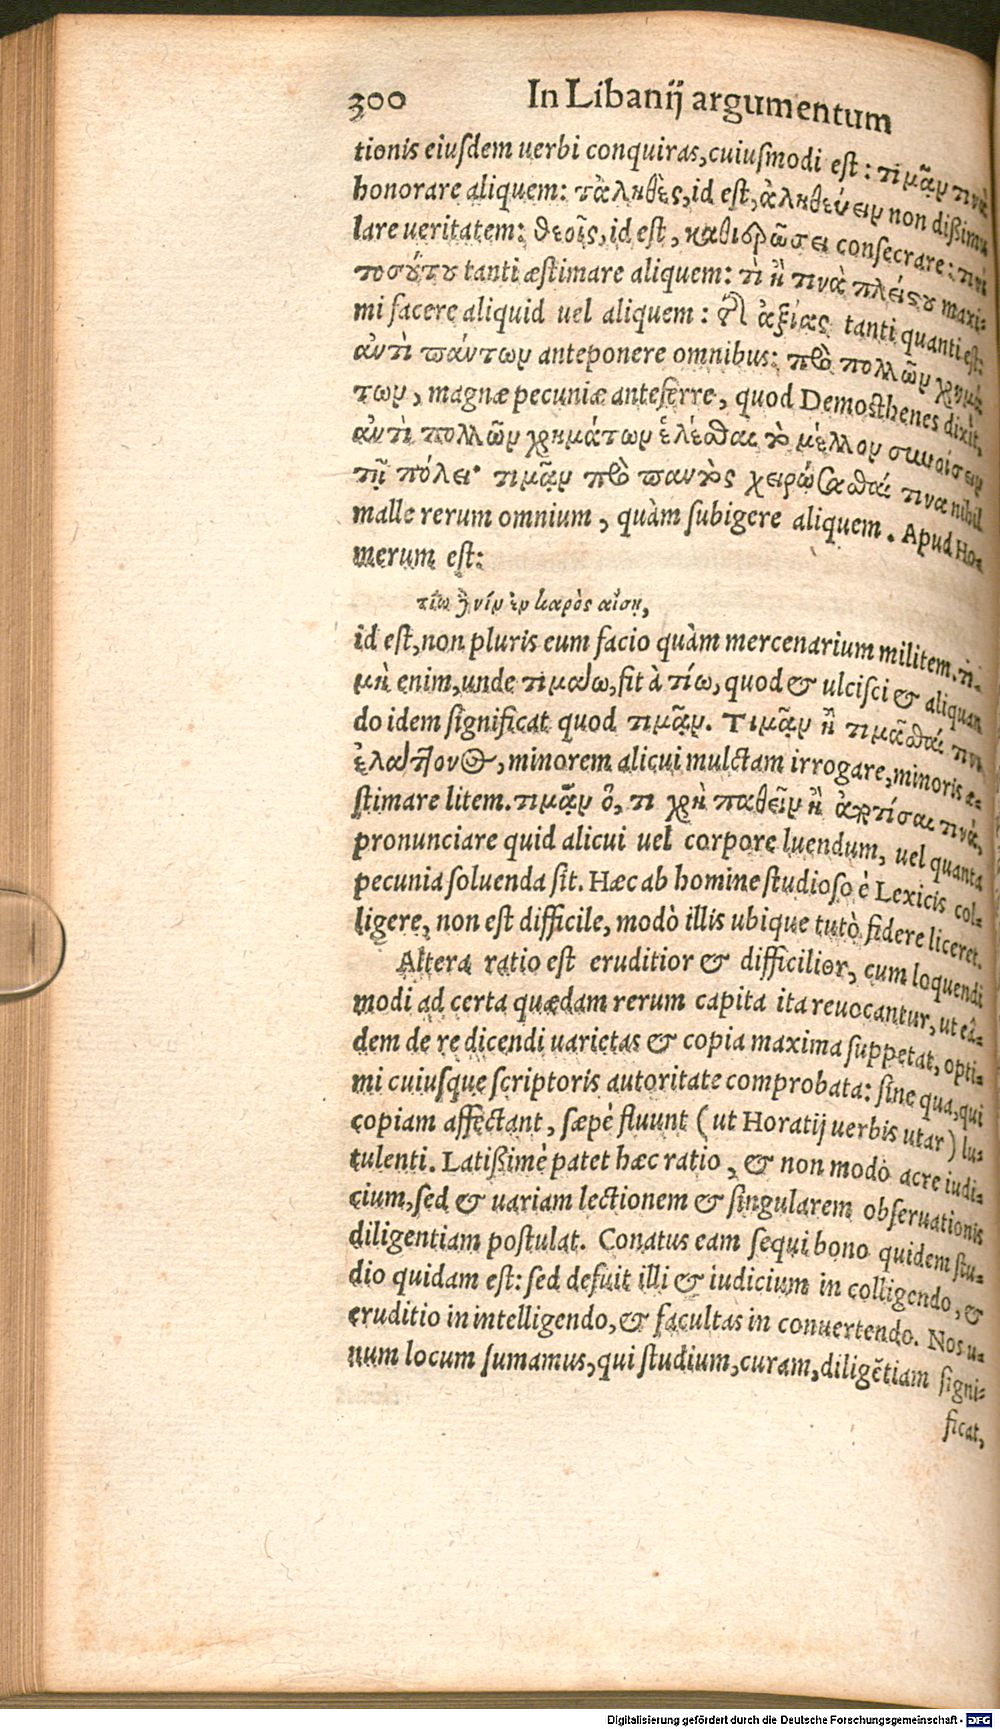 300 In Libanij argumentum
tionis eiuſdem uerbi conquiras, cuiuſmodi eſt: τιμᾷν τινὰ
honorare aliquem: τἀληθὲς, id eſt, ἀληθεύειν non dißimu
lare ueritatem: θεοῖς, id eſt, καθιερῶσαι conſecrare: τινὰ
τοσούτου tanti æſtimare aliquem: τὶ ἢ τινὰ πλείστου maxi-
mi facere aliquid uel aliquem: τῆς ἀξίας tanti quanti eſt:
ἀντὶ πάντων anteponere omnibus: πρὸ πολλῶν χρημά
των, magnæ pecuniæ anteferre, quod Demoſthenes dixit,
ἀντὶ πολλῶν χρημάτων ἑλέσθαι τὸ μέλλον συνοίσειν
τῇ πόλει· τιμᾷν πρὸ παντὸς χειρώσασθαί τινα nihil
malle rerum omnium, quàm ſubigere aliquem. Apud Ho-
merum eſt:
τίω δέ μιν ἐν καρὸς αἴσῃ,
id eſt, non pluris eum facio quàm mercenarium militem. τι-
μὴ enim, unde τιμάω, fit à τίω, quod & ulciſci & aliquan
do idem ſignificat quod τιμᾷν. Τιμᾷν ἢ τιμᾶσθαί τινι
ἐλάττονος, minorem alicui mulctam irrogare, minoris æ-
ſtimare litem. τιμᾷν ὅ, τι χρὴ παθεῖν ἢ ἀποτίσαι τινὰ,
pronunciare quid alicui uel corpore luendum, uel quanta
pecunia ſoluenda ſit. Hæc ab homine ſtudioſo è Lexicis col-
ligere, non eſt difficile, modò illis ubique tutò fidere liceret.
Altera ratio eſt eruditior & difficilior, cum loquendi
modi ad certa quædam rerum capita ita reuocantur, ut eâ-
dem de re dicendi uarietas & copia maxima ſuppetat, opti-
mi cuiuſque ſcriptoris autoritate comprobata: ſine qua, qui
copiam affectant, ſæpè fluunt (ut Horatij uerbis utar) lu-
tulenti. Latißimè patet hæc ratio, & non modò acre iudi-
cium, ſed & uariam lectionem & ſingularem obſeruationis
diligentiam poſtulat. Conatus eam ſequi bono quidem ſtu-
dio quidam eſt: ſed defuit illi & iudicium in colligendo, &
eruditio in intelligendo, & facultas in conuertendo. Nos u-
num locum ſumamus, qui ſtudium, curam, diligẽtiam ſigni-
ficat,
Digitalisierung gefördert durch die Deutsche Forschungsgemeinschaft - DFG